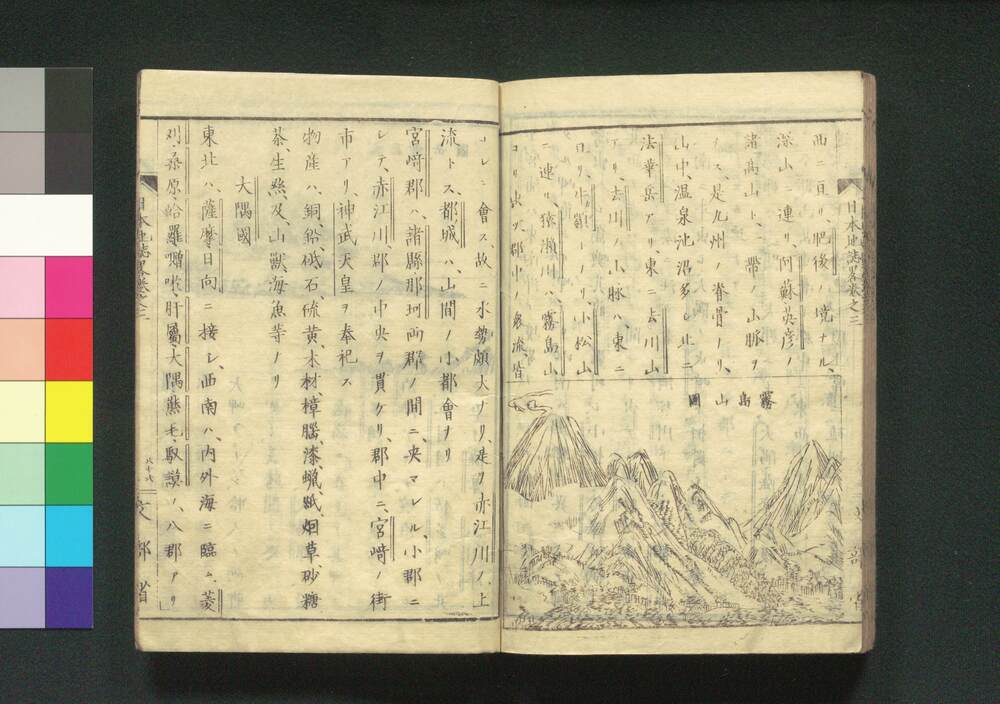 西ニ亘リ、肥後ノ境ナル、
深山ニ連リ、阿蘇英彦ノ
諸高山ト、一帶ノ山脈ヲ
ナス是九州ノ脊骨ノリ、
山中、温泉池沼多シ北ニ
法華岳アリ東ニ去川山
アリ、去川ノ小脈ハ、東ニ
ニ連リ、猿瀬川ハ、霧島山
ヨリ出ヅ、郡中ノ衆流、皆
霧島山圖
コレニ會ス、故ニ水勢頗大ナリ、是ヲ赤江川ノ上
流トス、都ノ城ハ、山間ノ小都會ナリ
宮﨑郡ハ、諸縣那珂両郡ノ間ニ、夾マレル、小郡ニ
シテ、赤江川、郡ノ中央ヲ貫クリ、郡中ニ、宮﨑ノ街
市アリ、神武天皇ヲ奉祀ス
物産ハ、銅、鉛、砥石、硫黄、木材、樟腦、漆、蠟、紙、烟草、砂糖
茶、生絲、及、山獸海魚等ノリ
大隅國
東北ハ、薩摩日向ニ接シ、西南ハ、内外海ニ臨ム、菱
刈、桑原、姶羅、囎唹、肝屬、大隅、熊毛、馭謨ノ、八郡アリ
日本地誌畧卷之三
文部省